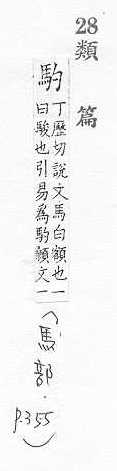 28
類篇
馰
丁歷切說文馬白額也一
曰駿也引易為馰顙文一
(馬部.
p.355)